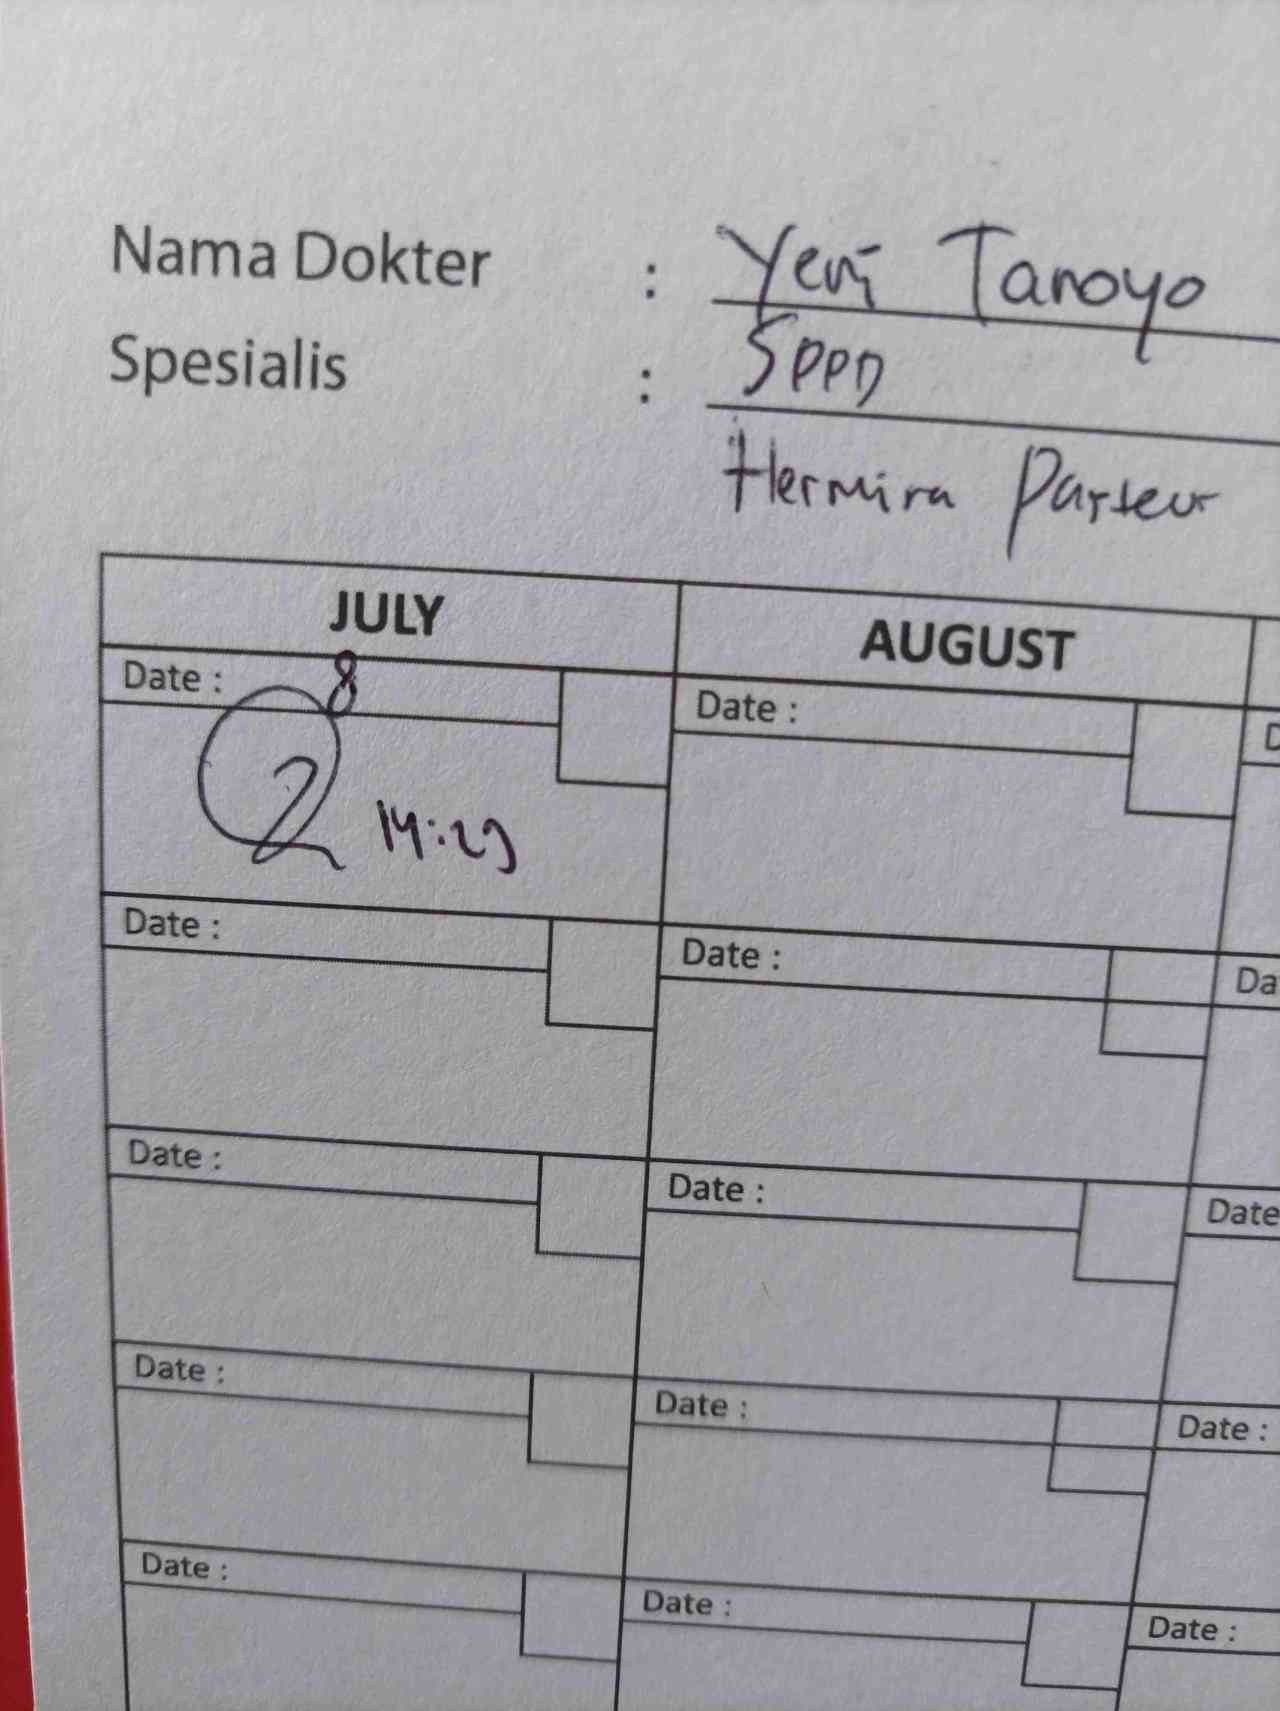 Nama Dokter : Yeni Tanoyo
Spesialis : SPPD
Hermina Pasteur
JULY AUGUST
Date : 8 Date :
14:29
Date : Date : Da
Date : Date : Date
Date : Date : Date :
Date : Date : Date :